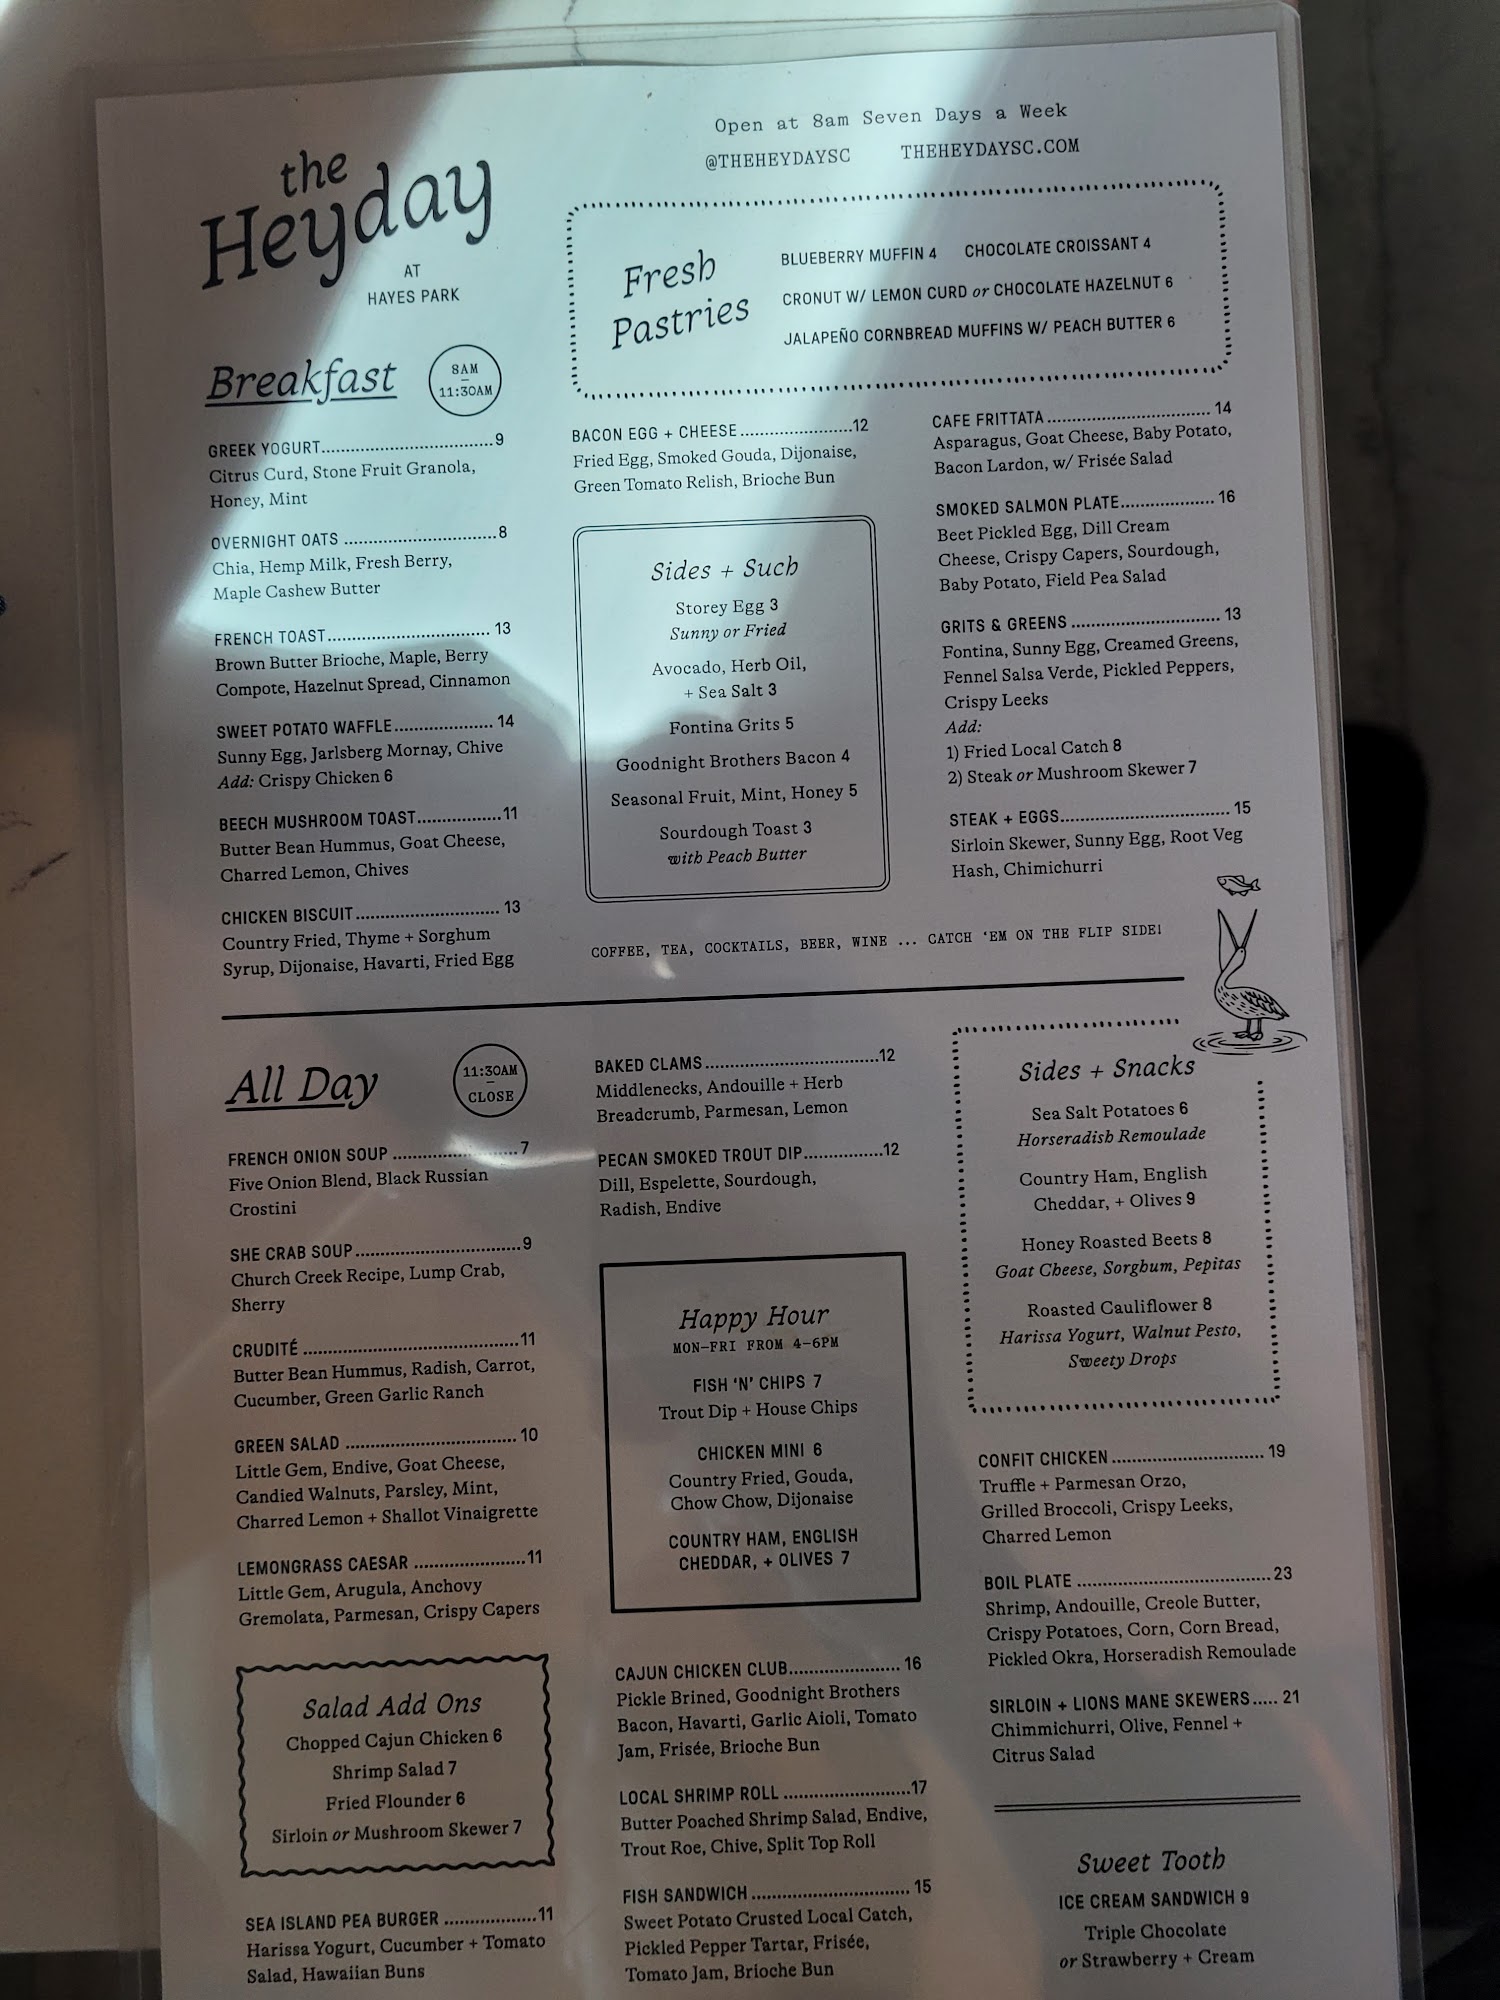 the
Heyday
AT
HAYES PARK
Open at 8am Seven Days a Week
@THEHEYDAYSC THEHEYDAYSC.COM
Fresh
Pastries
BLUEBERRY MUFFIN 4 CHOCOLATE CROISSANT 4
CRONUT W/ LEMON CURD or CHOCOLATE HAZELNUT 6
JALAPEÑO CORNBREAD MUFFINS W/ PEACH BUTTER 6
Breakfast
8AM
–
11:30AM
GREEK YOGURT..............................9
Citrus Curd, Stone Fruit Granola,
Honey, Mint
OVERNIGHT OATS ..........................8
Chia, Hemp Milk, Fresh Berry,
Maple Cashew Butter
FRENCH TOAST............................ 13
Brown Butter Brioche, Maple, Berry
Compote, Hazelnut Spread, Cinnamon
SWEET POTATO WAFFLE................. 14
Sunny Egg, Jarlsberg Mornay, Chive
Add: Crispy Chicken 6
BEECH MUSHROOM TOAST...............11
Butter Bean Hummus, Goat Cheese,
Charred Lemon, Chives
CHICKEN BISCUIT......................... 13
Country Fried, Thyme + Sorghum
Syrup, Dijonaise, Havarti, Fried Egg
BACON EGG + CHEESE....................12
Fried Egg, Smoked Gouda, Dijonaise,
Green Tomato Relish, Brioche Bun
Sides + Such
Storey Egg 3
Sunny or Fried
Avocado, Herb Oil,
+ Sea Salt 3
Fontina Grits 5
Goodnight Brothers Bacon 4
Seasonal Fruit, Mint, Honey 5
Sourdough Toast 3
with Peach Butter
CAFE FRITTATA............................ 14
Asparagus, Goat Cheese, Baby Potato,
Bacon Lardon, w/ Frisée Salad
SMOKED SALMON PLATE................ 16
Beet Pickled Egg, Dill Cream
Cheese, Crispy Capers, Sourdough,
Baby Potato, Field Pea Salad
GRITS & GREENS ......................... 13
Fontina, Sunny Egg, Creamed Greens,
Fennel Salsa Verde, Pickled Peppers,
Crispy Leeks
Add:
1) Fried Local Catch 8
2) Steak or Mushroom Skewer 7
STEAK + EGGS............................. 15
Sirloin Skewer, Sunny Egg, Root Veg
Hash, Chimichurri
COFFEE, TEA, COCKTAILS, BEER, WINE ... CATCH ‘EM ON THE FLIP SIDE!
All Day
11:30AM
–
CLOSE
FRENCH ONION SOUP .....................7
Five Onion Blend, Black Russian
Crostini
SHE CRAB SOUP............................9
Church Creek Recipe, Lump Crab,
Sherry
CRUDITÉ ....................................11
Butter Bean Hummus, Radish, Carrot,
Cucumber, Green Garlic Ranch
GREEN SALAD ............................. 10
Little Gem, Endive, Goat Cheese,
Candied Walnuts, Parsley, Mint,
Charred Lemon + Shallot Vinaigrette
LEMONGRASS CAESAR ...................11
Little Gem, Arugula, Anchovy
Gremolata, Parmesan, Crispy Capers
Salad Add Ons
Chopped Cajun Chicken 6
Shrimp Salad 7
Fried Flounder 6
Sirloin or Mushroom Skewer 7
SEA ISLAND PEA BURGER ................11
Harissa Yogurt, Cucumber + Tomato
Salad, Hawaiian Buns
BAKED CLAMS..............................12
Middlenecks, Andouille + Herb
Breadcrumb, Parmesan, Lemon
PECAN SMOKED TROUT DIP..............12
Dill, Espelette, Sourdough,
Radish, Endive
Happy Hour
MON–FRI FROM 4–6PM
FISH ‘N’ CHIPS 7
Trout Dip + House Chips
CHICKEN MINI 6
Country Fried, Gouda,
Chow Chow, Dijonaise
COUNTRY HAM, ENGLISH
CHEDDAR, + OLIVES 7
CAJUN CHICKEN CLUB.................... 16
Pickle Brined, Goodnight Brothers
Bacon, Havarti, Garlic Aioli, Tomato
Jam, Frisée, Brioche Bun
LOCAL SHRIMP ROLL .....................17
Butter Poached Shrimp Salad, Endive,
Trout Roe, Chive, Split Top Roll
FISH SANDWICH ........................... 15
Sweet Potato Crusted Local Catch,
Pickled Pepper Tartar, Frisée,
Tomato Jam, Brioche Bun
Sides + Snacks
Sea Salt Potatoes 6
Horseradish Remoulade
Country Ham, English
Cheddar, + Olives 9
Honey Roasted Beets 8
Goat Cheese, Sorghum, Pepitas
Roasted Cauliflower 8
Harissa Yogurt, Walnut Pesto,
Sweety Drops
CONFIT CHICKEN.......................... 19
Truffle + Parmesan Orzo,
Grilled Broccoli, Crispy Leeks,
Charred Lemon
BOIL PLATE .................................23
Shrimp, Andouille, Creole Butter,
Crispy Potatoes, Corn, Corn Bread,
Pickled Okra, Horseradish Remoulade
SIRLOIN + LIONS MANE SKEWERS..... 21
Chimmichurri, Olive, Fennel +
Citrus Salad
Sweet Tooth
ICE CREAM SANDWICH 9
Triple Chocolate
or Strawberry + Cream